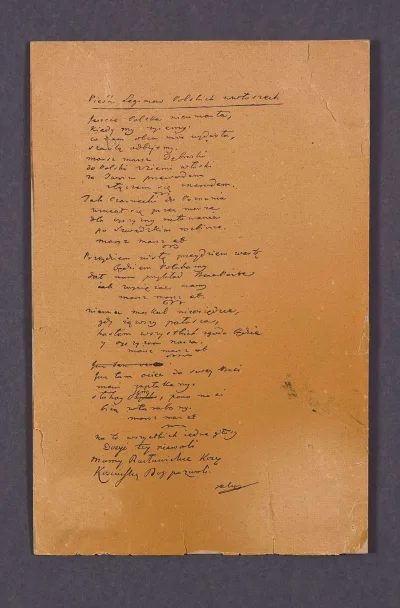 Pieśń Legionów Polskich we Włoszech
Jeszcze Polska nie umarła,
kiedy my żyjemy.
co nam obca moc wydarła,
szablą odbijemy.
marsz marsz Dąbrski
do Polski z ziemi włoski
za Twoim przewodem
złączem się z narodem.
Jak Czarnecki do Poznania
wracał się przez morze
dla ojczyzny ratowania
po Szwedzkim rozbiorze.
marsz marsz et
Przejdziem Wisłę przejdziem Wartę
będziem Polakami
dał nam przykład Bonaparte
jak zwyciężać mamy
marsz marsz et.
niemiec moskal nie osiędzie,
gdy jąwszy pałasza,
hasłem wszystkich zgoda będzie
y ojczyzna nasza.
marsz marsz et
Już tam
Już tam ociec do swej Basi
mówi zapłakany.
słuchaj, pono nasi
biją w tarabany.
marsz marsz et
na to wszystkich jedne głosy
Dosyć tej niewoli.
Mamy Racławickie Kosy
Kościuszkę Bóg pozwoli.